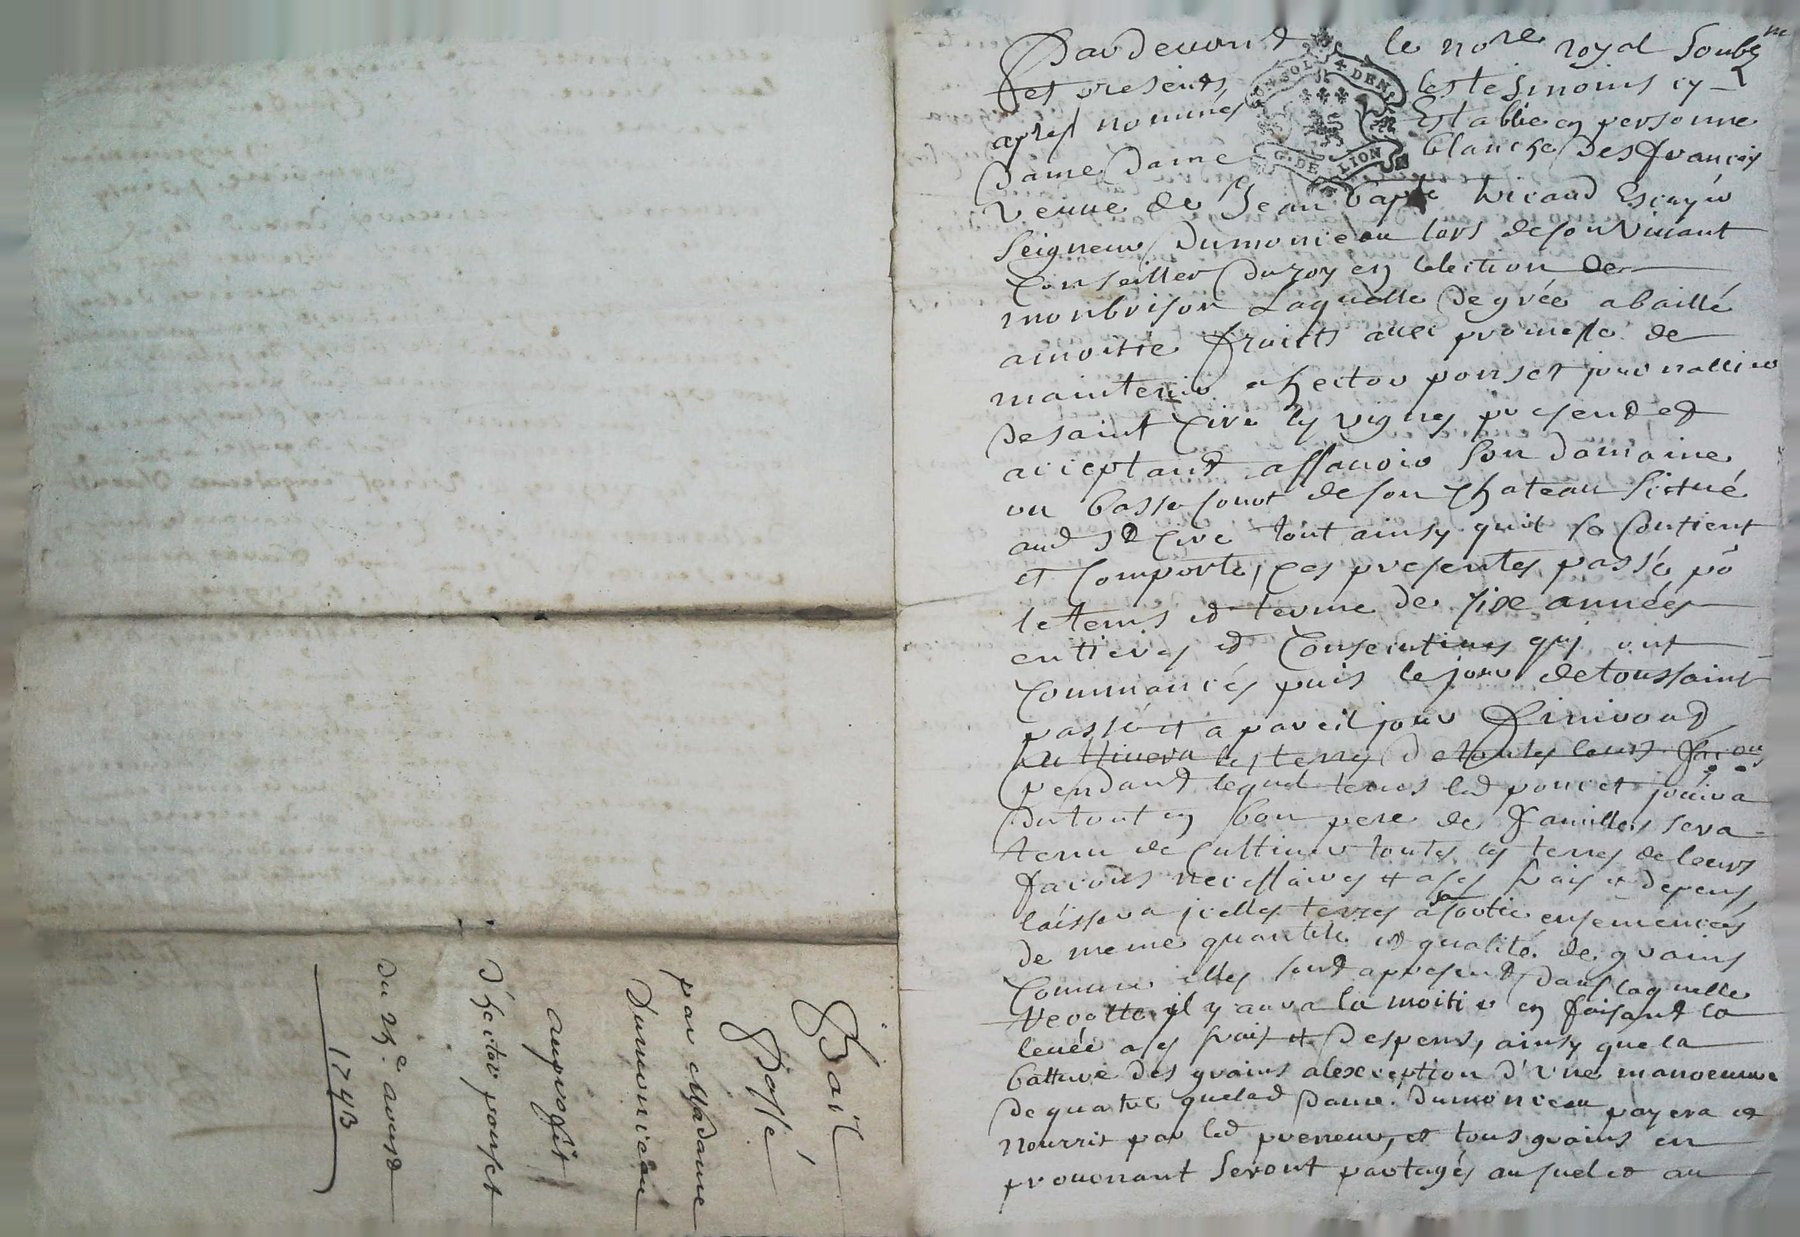 Pardevant le nore royal soubs
et presents, les tesmoins cy
apres nommés Establie en personne
Dame Dame blanche Desfrancois
veuve de Jean bapte hicaud Escuyer
Seigneur Dumonceau lors de son vivant
Conseiller du roy en lelection de
monbrison Laquelle de grée a baillé
a moitie fruicts avec promesse de
maintenir a hector ponset journallier
de saint Cire les vignes present et
acceptant assavoir son domaine
ou basse court de son chateau scitué
aud st Cire tout ainsy quil se contient
et comporte, ces presentes passé po
le tems et terme de sixe années
entieres et consecutives qui ont
commancés puis le jour de toussaint
passé et a pareil jour finiront
cultivera les terres de toutes leurs facons
pendant lequel tems led poncet jouira
du tout en bon pere de famille, sera
tenu de cultiver touttes les terres de leurs
facons necessaires et a ses frais et depens,
laissera jcelles terres a sa sortie ensemencés
de meme quantité et qualité de grains
comme elles sont apresent dans laquelle
recolte il y aura la moitié en faisant la
levée a ses frais et despens, ainsy que la
batture des grains alexception d'une manoeuvre
de quatre que lad dame Dumonceau payera et
nourrit par led preneur, et tous grains en
provenant seront partagés au suel et au
Bail
Passé
par Madame
Dumonceau
au profit
d'hector ponset
du 25e avril
1743
G. DE LION
4 DEN
UN SOL